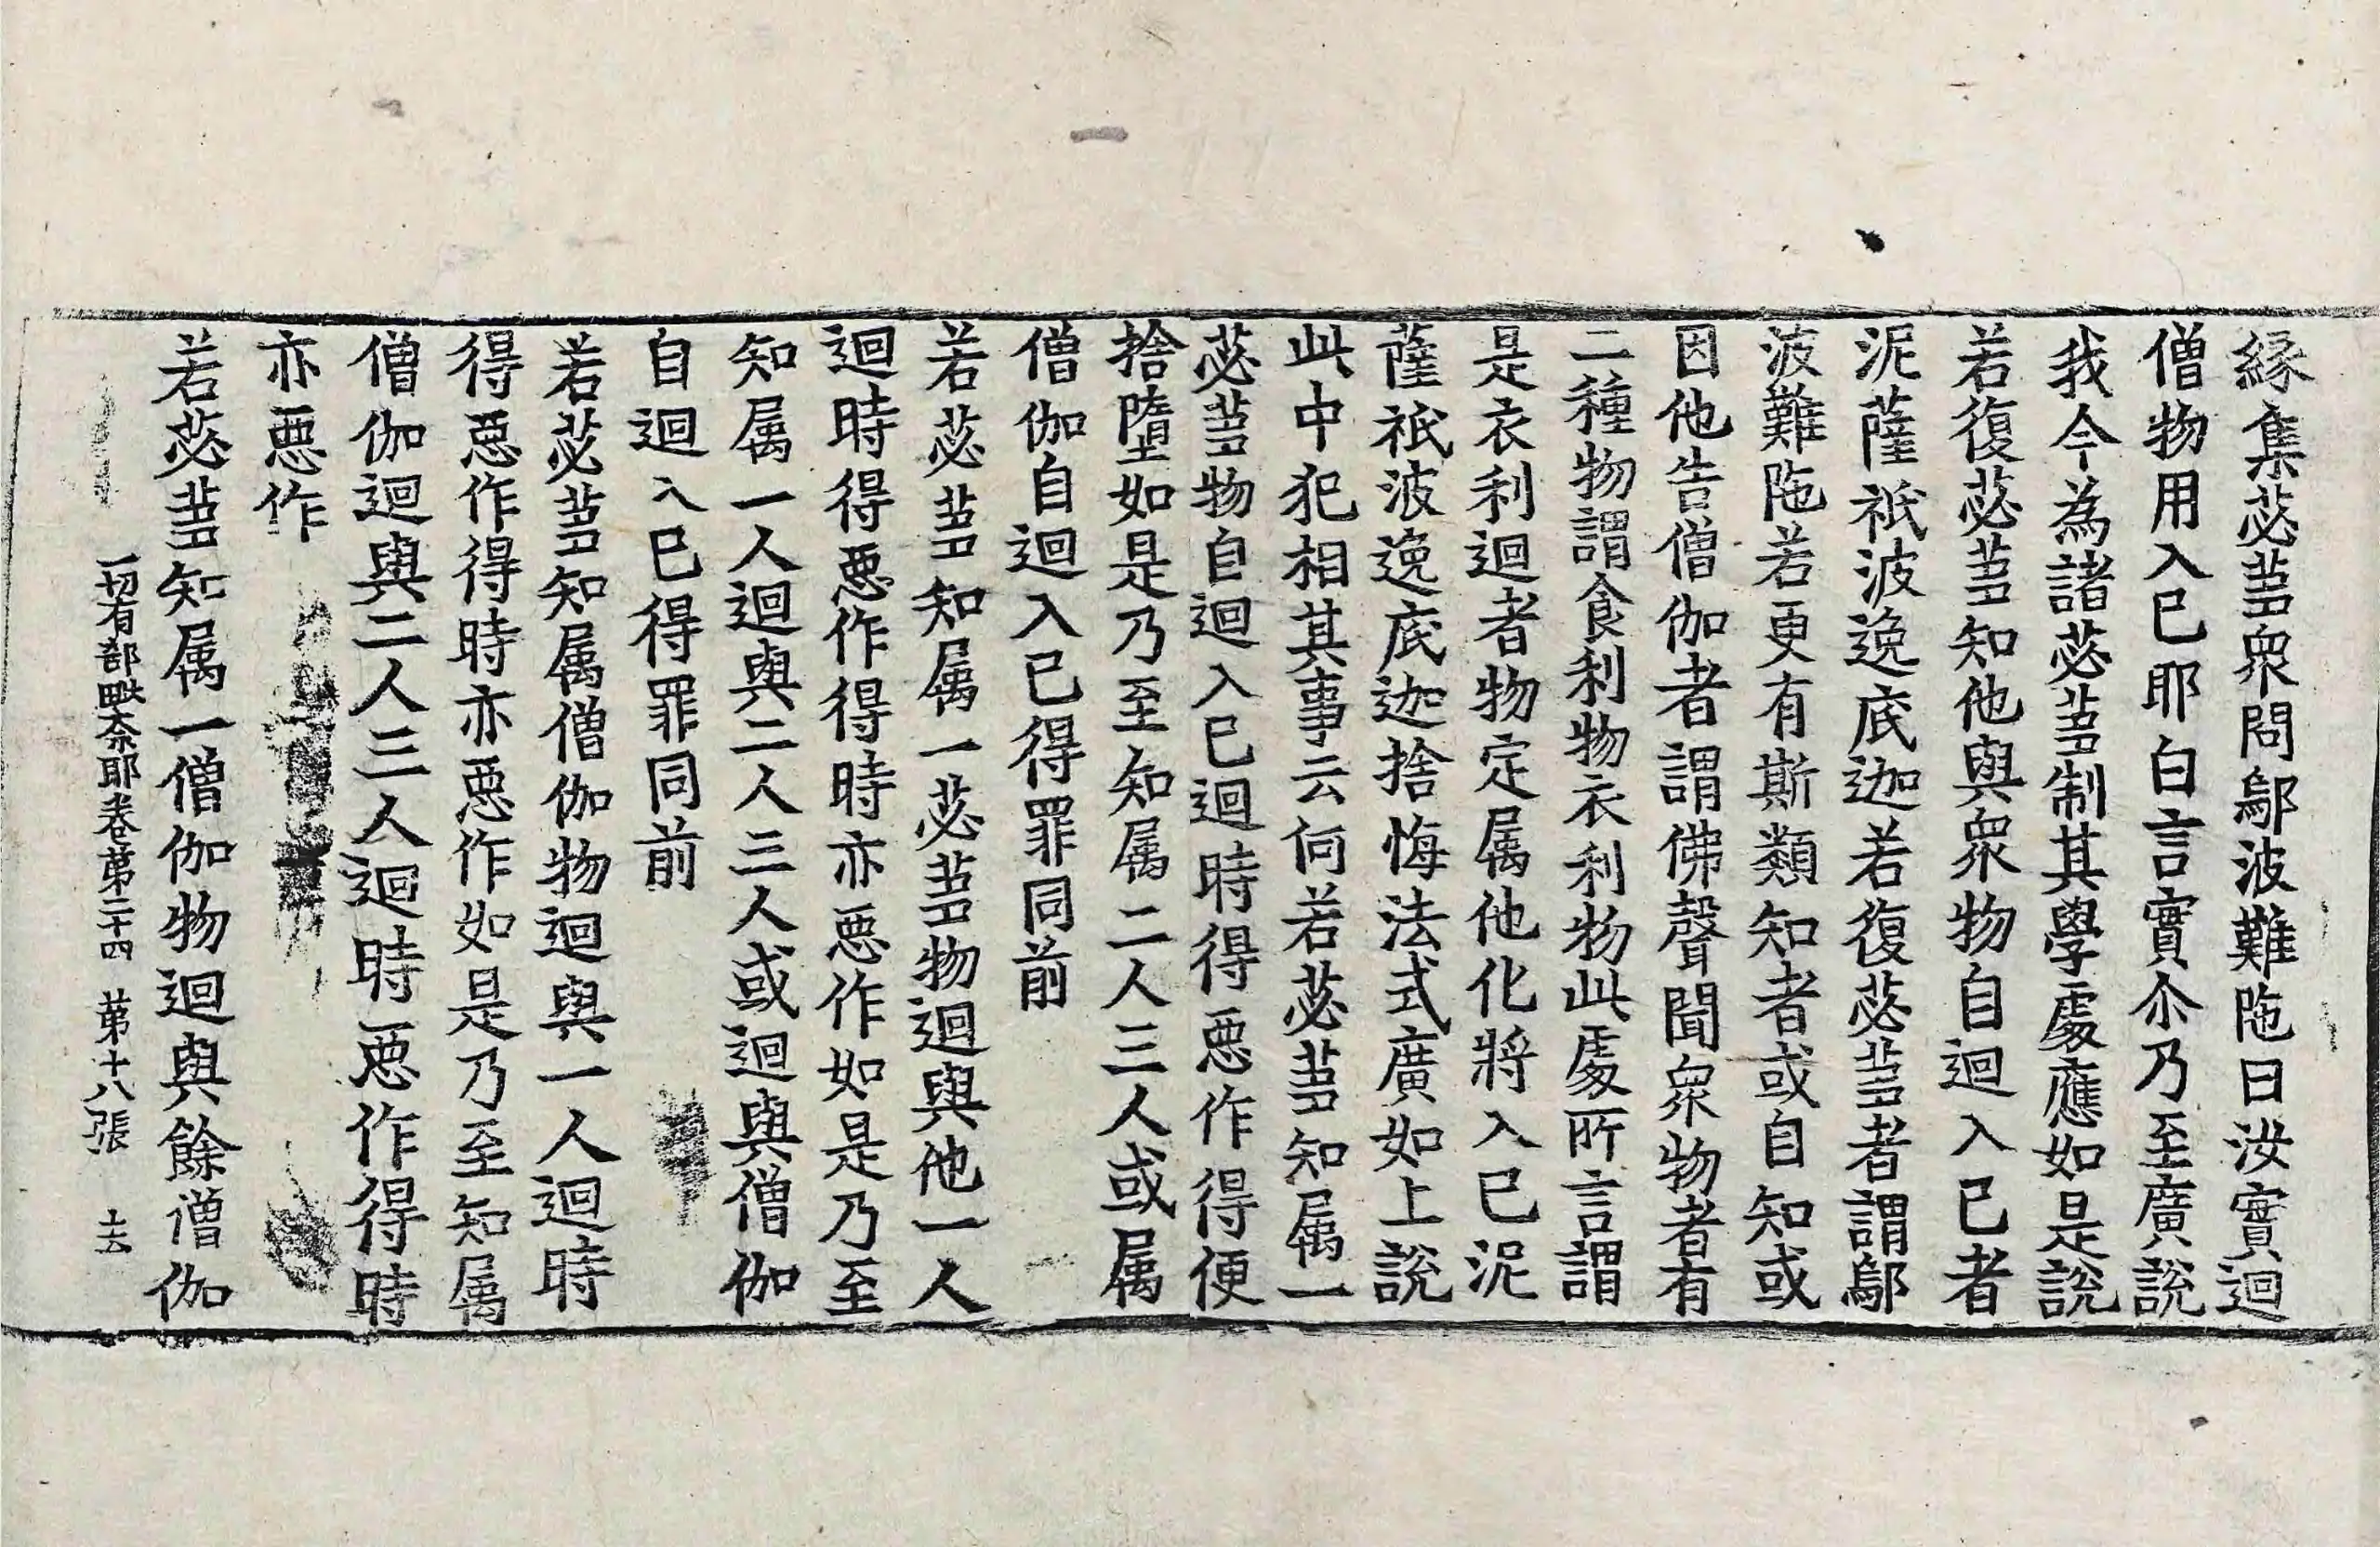 縁集苾蒭衆問鄔波難陁曰汝實迴
僧物用入已耶白言實尒乃至廣說
我今為諸苾蒭制其學處應如是說
若復苾蒭知他與衆物自迴入已者
泥薩祇波逸底迦若復苾蒭者謂鄔
波難陁若更有斯類知者或自知或
因他告僧伽者謂佛聲聞衆物者有
二種物謂食利物衣利物此處所言謂
是衣利迴者物定属他化將入已泥
薩祇波逸底迦捨悔法式廣如上說
此中犯相其事云何若苾蒭知属一
苾蒭物自迴入已迴時得惡作得便
捨墮如是乃至知属二人三人或属
僧伽自迴入已得罪同前
若苾蒭知属一苾蒭物迴與他一人
迴時得惡作得時亦惡作如是乃至
知属一人迴與二人三人或迴與僧伽
自迴入已得罪同前
若苾蒭知属僧伽物迴與一人迴時
得惡作得時亦惡作如是乃至知属
僧伽迴與二人三人迴時惡作得時
亦惡作
若苾蒭知属一僧伽物迴與餘僧伽
一切有部毗奈耶卷第二十四 第十八張